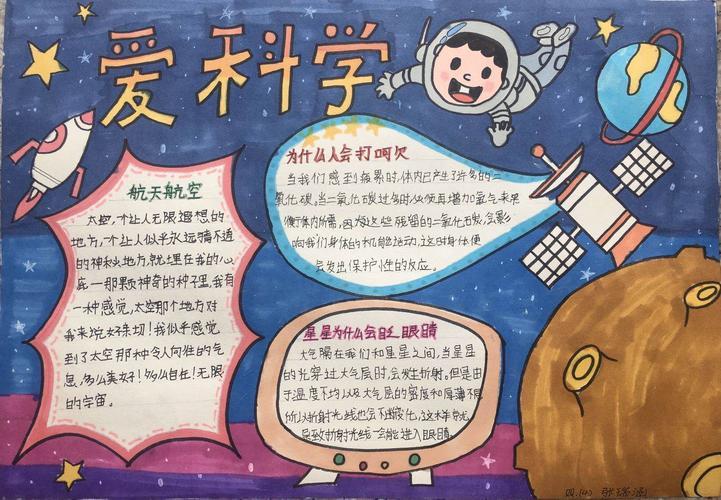 爱科学
航天航空
太空，才让人无限遐想的
地方，才让人似乎永远猜不透
的神秘地方，就埋在我的心
底一那颗神奇的种子里，我有
一种感觉，太空那个地方对
我来说好亲切！我似乎感觉
到了太空那种令人向往的气
息，多么美好！多么自在！无限
的宇宙。
为什么人会打呵欠
当我们感到疲累时，体内已产生了许多的二
氧化碳。当二氧化碳过多时，必须再增加氧气来平
衡体内所需，因为这些残留的二氧化碳，会影
响我们身体的机能活动，这时身体便
会发出保护性的反应。
星星为什么会眨眼睛
大气隔在我们和星星之间，当星星
的光穿过大气层时，会发生折射。但是由
于温度不均以及大气层的密度和厚薄不同
所以折射光线也会不断变化，这样就
导致折射光线一会能进入眼睛。
四.(4) 张瑞涵